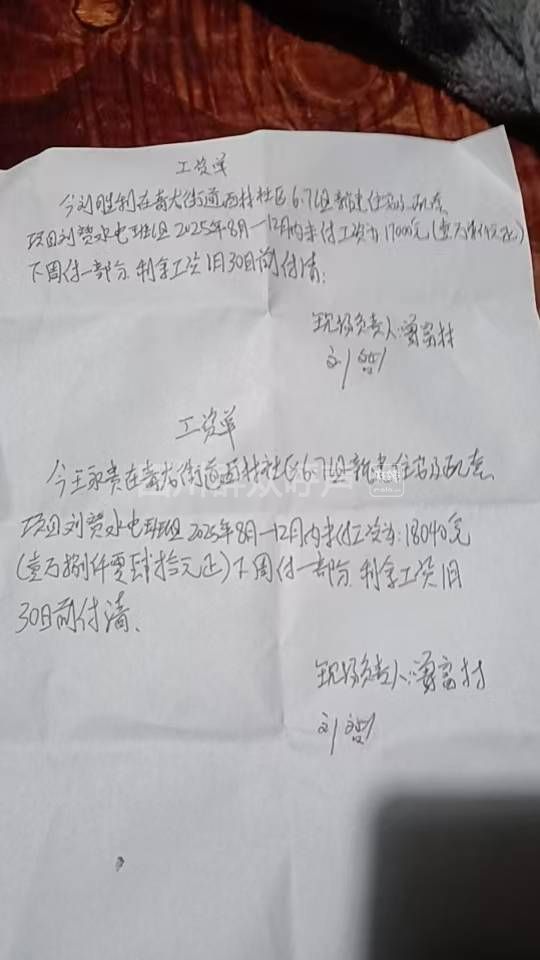 工资单
今刘胜利在青龙街道西林社区6.7组新建住宅及配套
项目刘赟水电班组2025年8月一12月内未付工资为17000元(壹万柒仟元正)
下周付一部分 剩余工资1月30日前付清;
现场负责人:富林
刘
工资单
今王永贵在青龙街道西林社区6.7组新建住宅及配套
项目刘赟水电班组2025年8月一12月内未付工资为:18040元
(壹万捌仟零肆拾元正)下周付一部分 剩余工资1月
30日前付清、
现场负责人:富林
刘